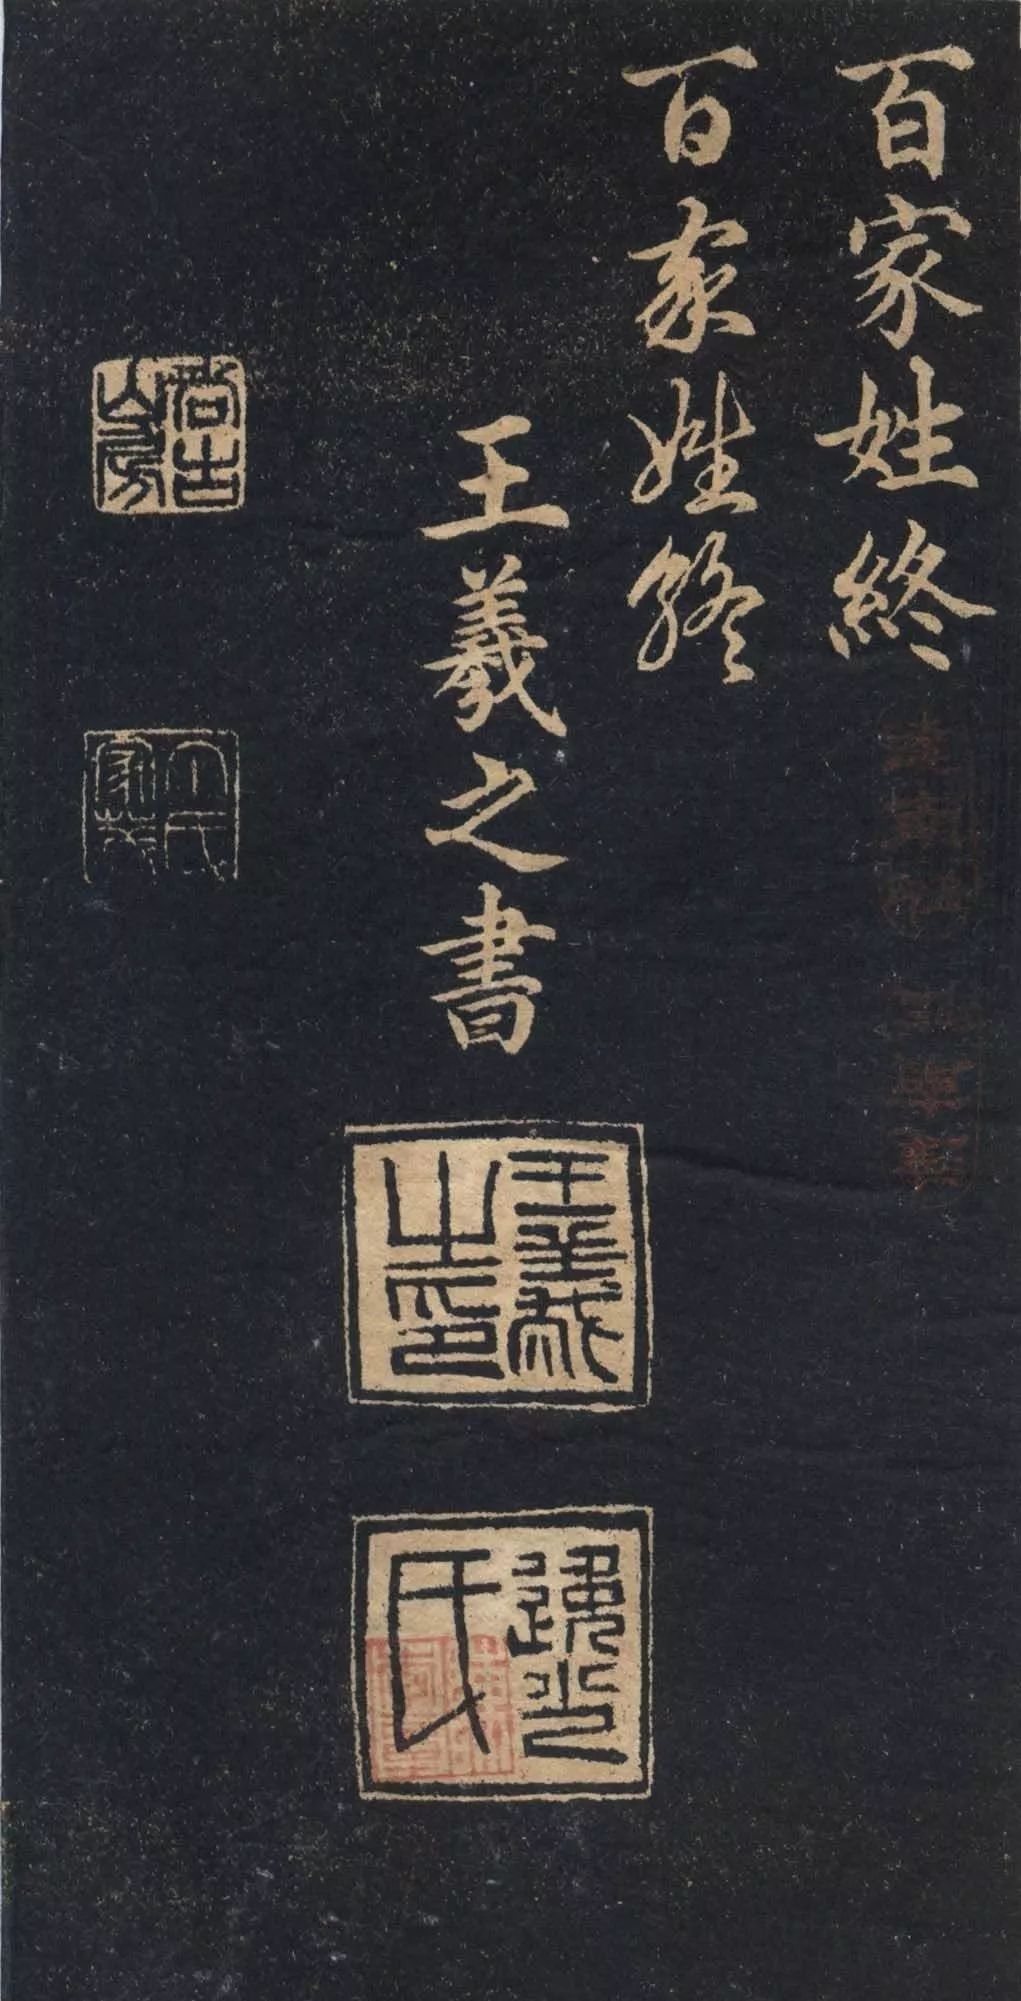 百家姓終
百家姓終
王羲之書
王羲之印
逸少氏
稽古山房